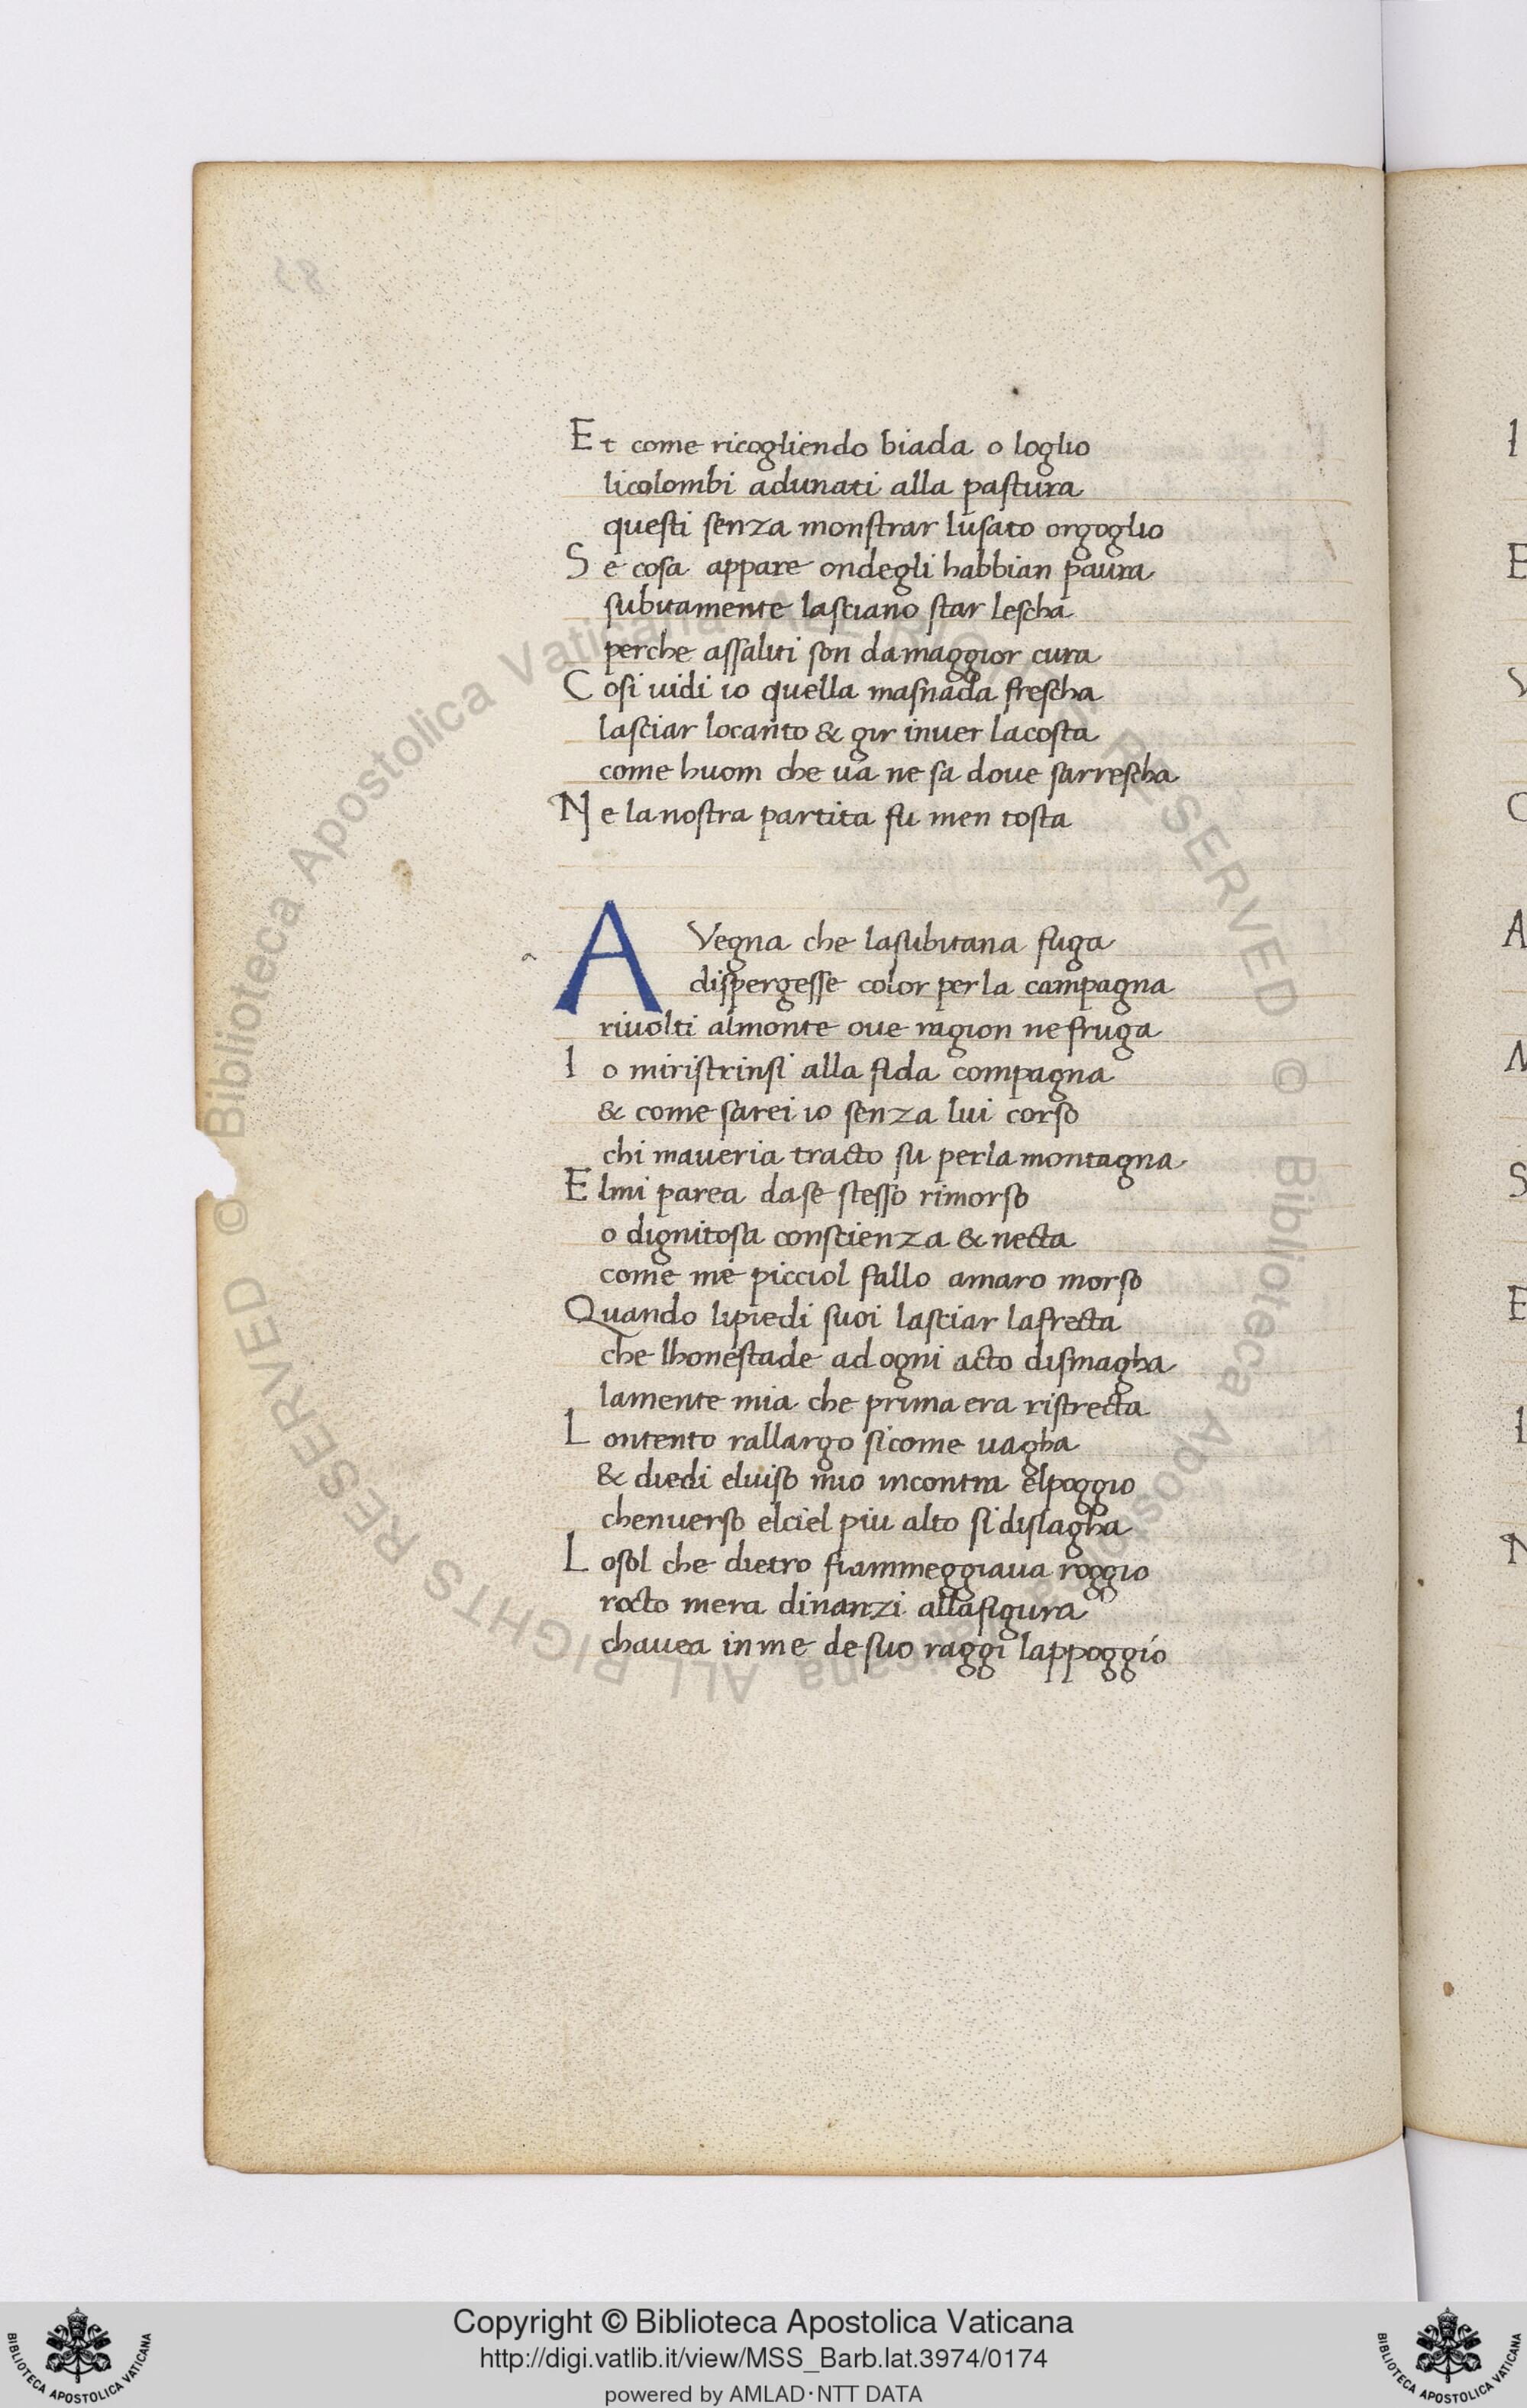 Et come ricogliendo biada o loglio
licolombi adunati alla pastura
questi senza monstrar lusato orgoglio
Se cosa appare ondegli habbian paura
subitamente lasciano star lescha
perche assaliti son damaggior cura
Cosi uidi io quella masnada frescha
lasciar locanto & gir inuer lacosta
come huom che ua ne sa doue sarrescha
Ne la nostra partita fu men tosta
AVegna che lasubitana fuga
a
dispergesse color perla campagna
riuolti almonte oue ragion ne fruga
Io miristrinsi alla fida compagna
& come sarei io senza lui corso
chi maueria tracto su perla montagna
Elmi parea dase stesso rimorso
o dignitosa conscienza & necta
come me picciol fallo amaro morso
Quando lipiedi suoi lasciar lafrecta
che lhonestade ad ogni acto dismagha
lamente mia che prima era ristrecta
Lontento rallargo sicome uagha
& diedi eluiso mio incontra elpoggio
chenuerso elciel piu alto si dislagha
Losol che dietro fiammeggiaua roggio
rocto mera dinanzi allafigura
chauea in me de suo raggi lappoggio
I
E
V
C
A
N
S
E
L
N
© Biblioteca Apostolica Vaticana ALL RIGHTS RESERVED © Biblioteca Apostolica Vaticana ALL RIGHTS RESERVED
Copyright © Biblioteca Apostolica Vaticana
http://digi.vatlib.it/view/MSS_Barb.lat.3974/0174
powered by AMLAD·NTT DATA
BIBLIOTECA APOSTOLICA VATICANA
BIBLIOTECA APOSTOLICA VATICANA